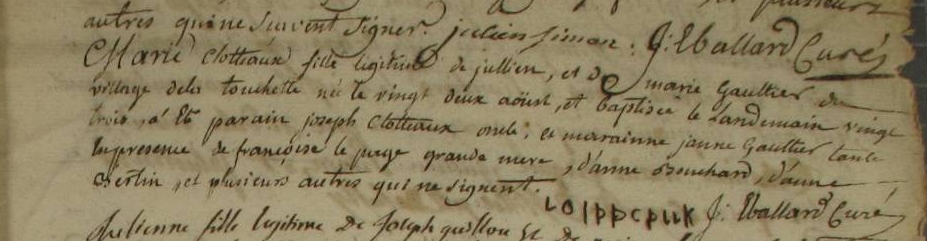 plusieurs
autres qui ne scavent signer. julien simon. J. Eballard Curé
Marie Clotteaux fille legitime de jullien, et de marie Gaultier du
village dela touchette née le vingt deux aöust, et baptisée le Landemain vingt
trois, a été parain joseph Clotteaux oncle, et marainne janne Gaultier tante
En presence de françoise le page grande mere, d'anne Bouchard, d'anne
Bertin, et plusieurs autres qui ne signent.
J. Eballard Curé
Julienne fille legitime de Joseph guillou et de